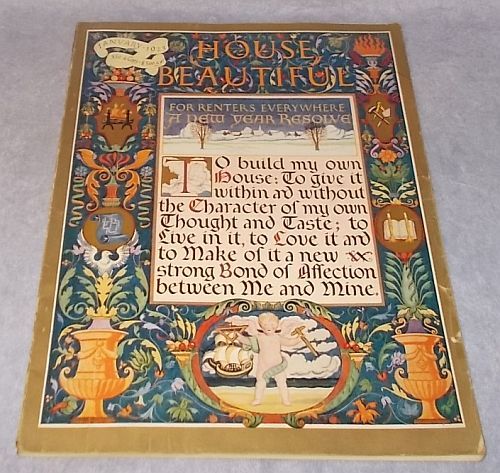 JANUARY - 1923
HOUSE
BEAUTIFUL
FOR RENTERS EVERYWHERE
A NEW YEAR RESOLVE
TO build my own
House: To give it
within ad without
the Character of my own
Thought and Taste; to
Live in it, to Love it ad
to Make of it a new
strong Bond of Affection
between Me and Mine.